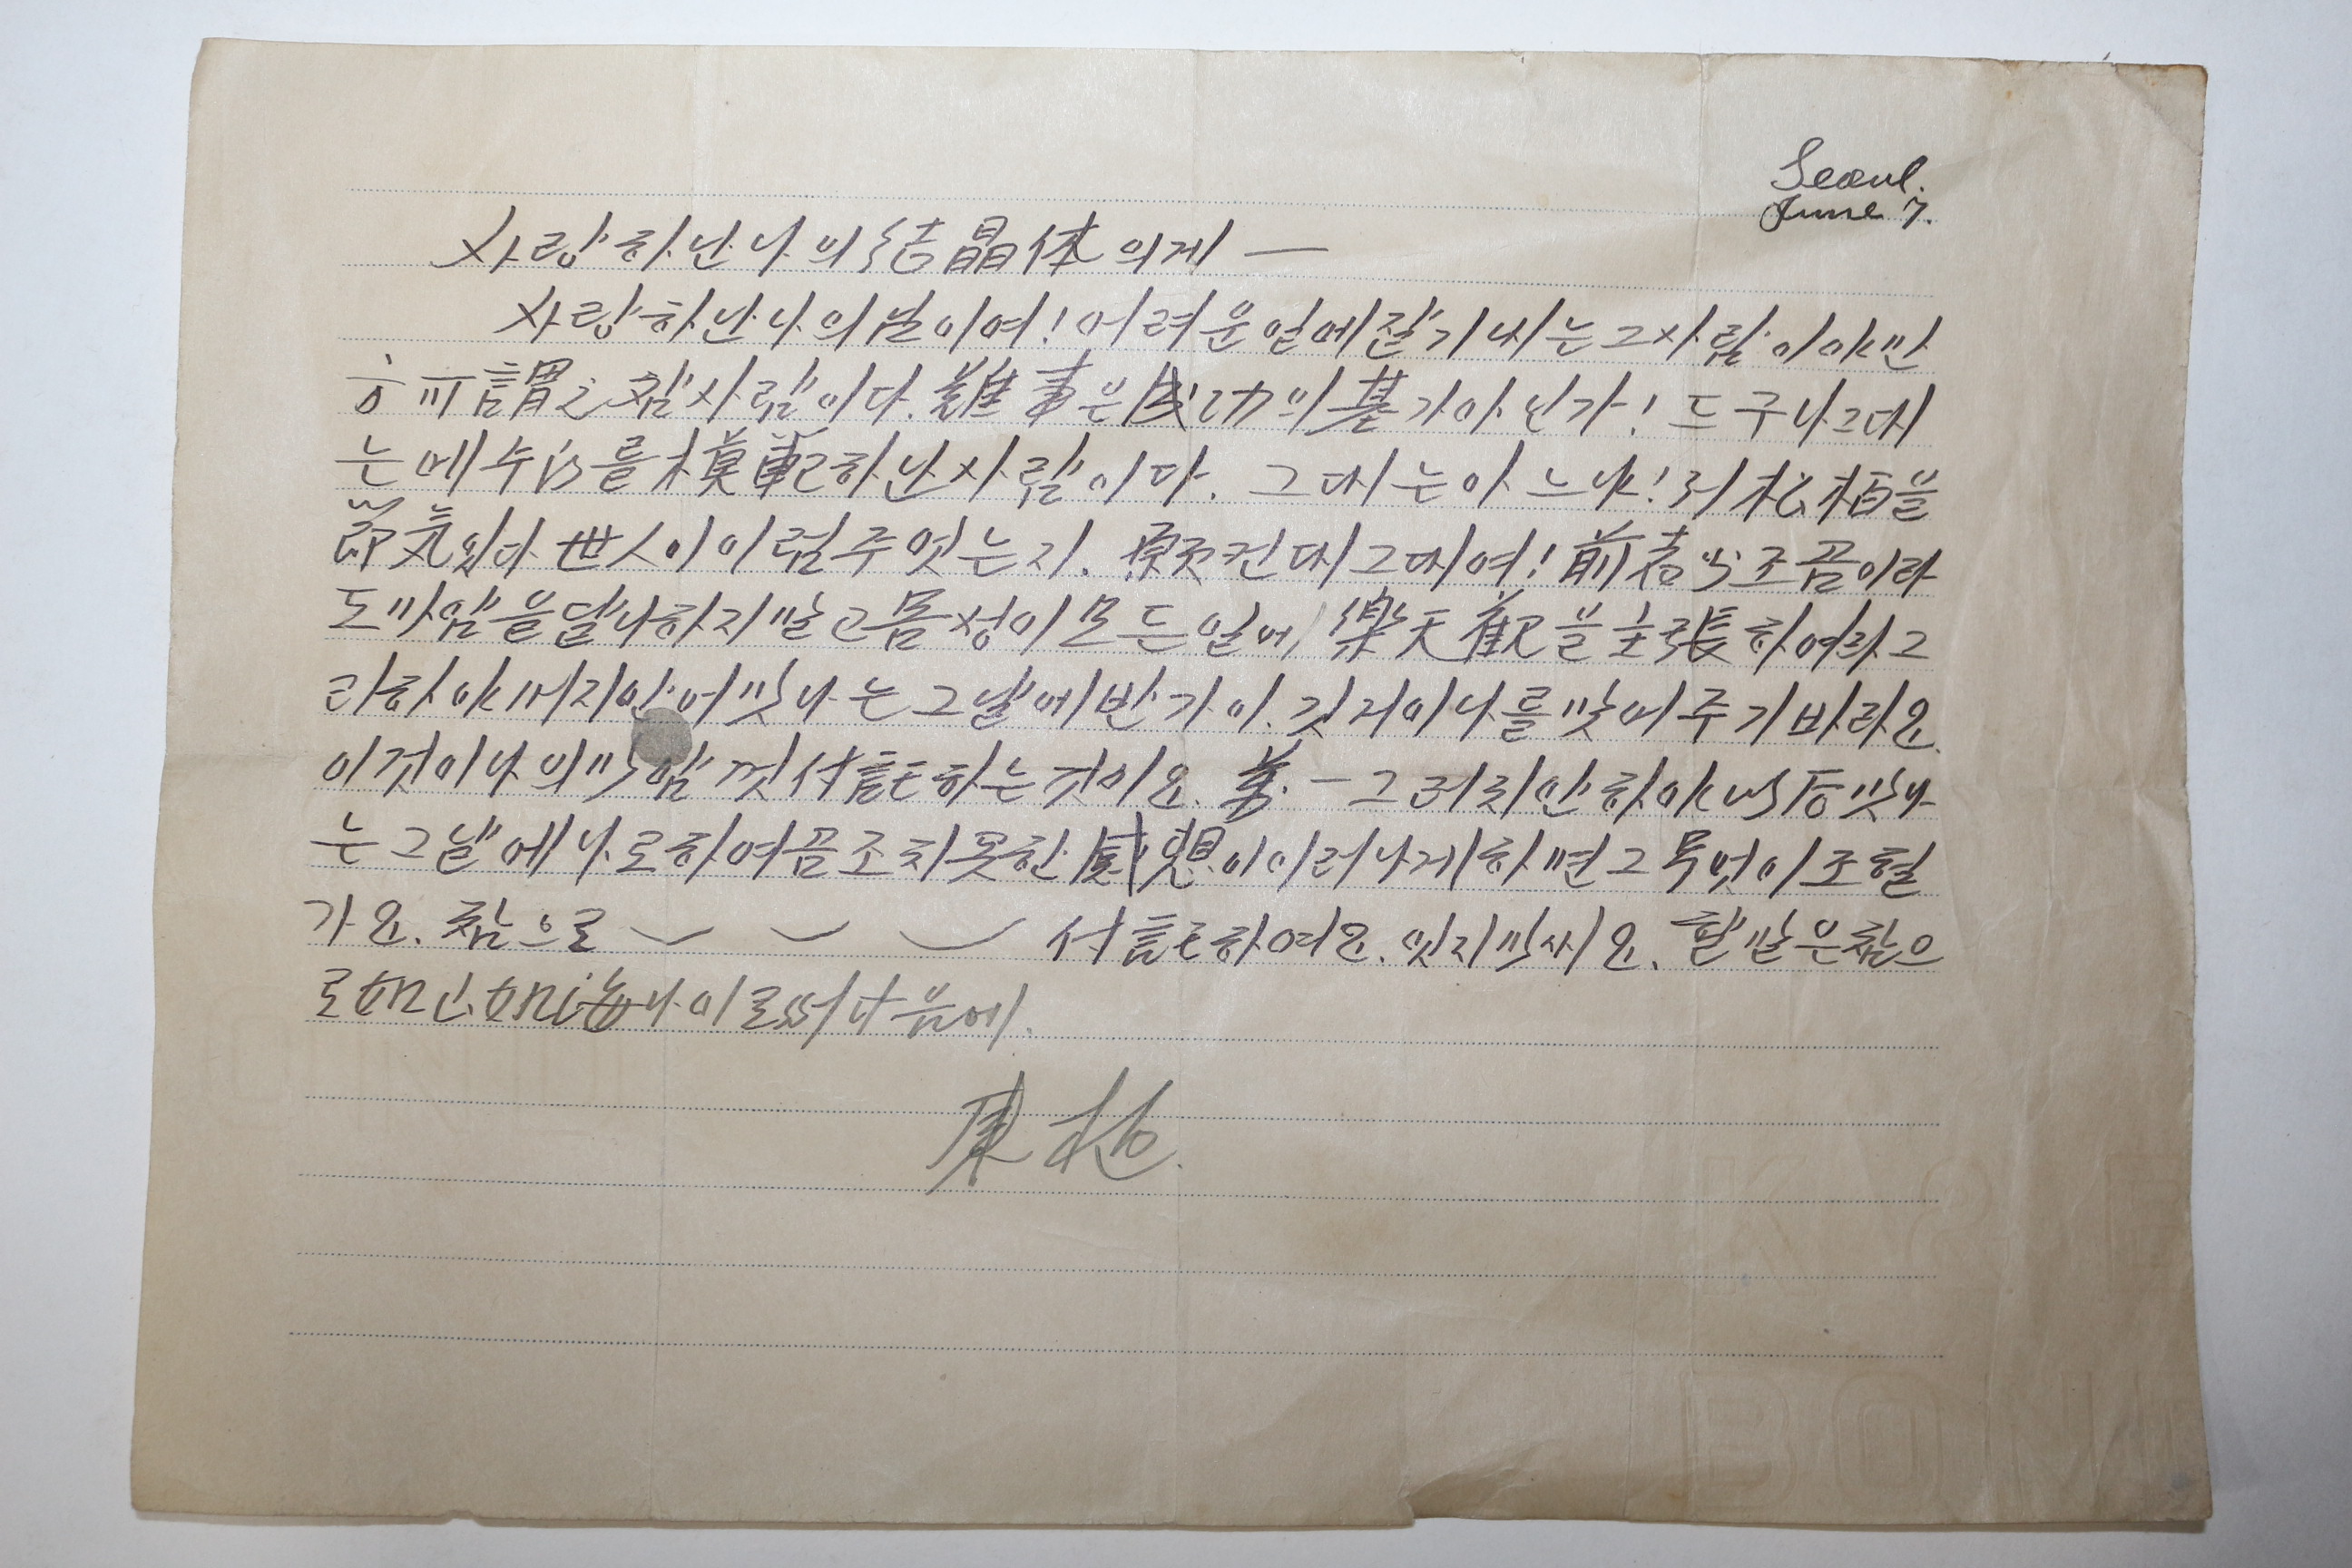 Seoul.
June 7.
사랑하난 나의 結晶体의게 —
사랑하난 나의 님이여! 어려운 일에 잘 기내는 그 사람이야만
흐 可謂之 참사람이다. 難事은 成功의 基가 아닌가! 드구나 그대
는 예수的를 模範하난 사람이다. 그대는 아느냐! 저 松栢을
節気잇다 世人이 이럼주엇는지. 願컨대 그대여! 前者 조곰이라
도 마암을 달나하지 말고 몸성이 모든 일에 樂天觀을 主張하여라 그
리하야 머지안어 맛나는 그날에 반가이. 깃거이 나를 맛어주기 바라오.
이것이 나의 마암껏 付託하는 것이오. 萬一 그러치 안하야 맛나
는 그날에 나로 하여곰 조치 못한 感想이 이러나게 하면 그 무엇이 조헐
가요. 참으로 付託하여요. 잇지 마시오. 할 말은 참으
로 如山如海나 이로써 나음에.
東松.